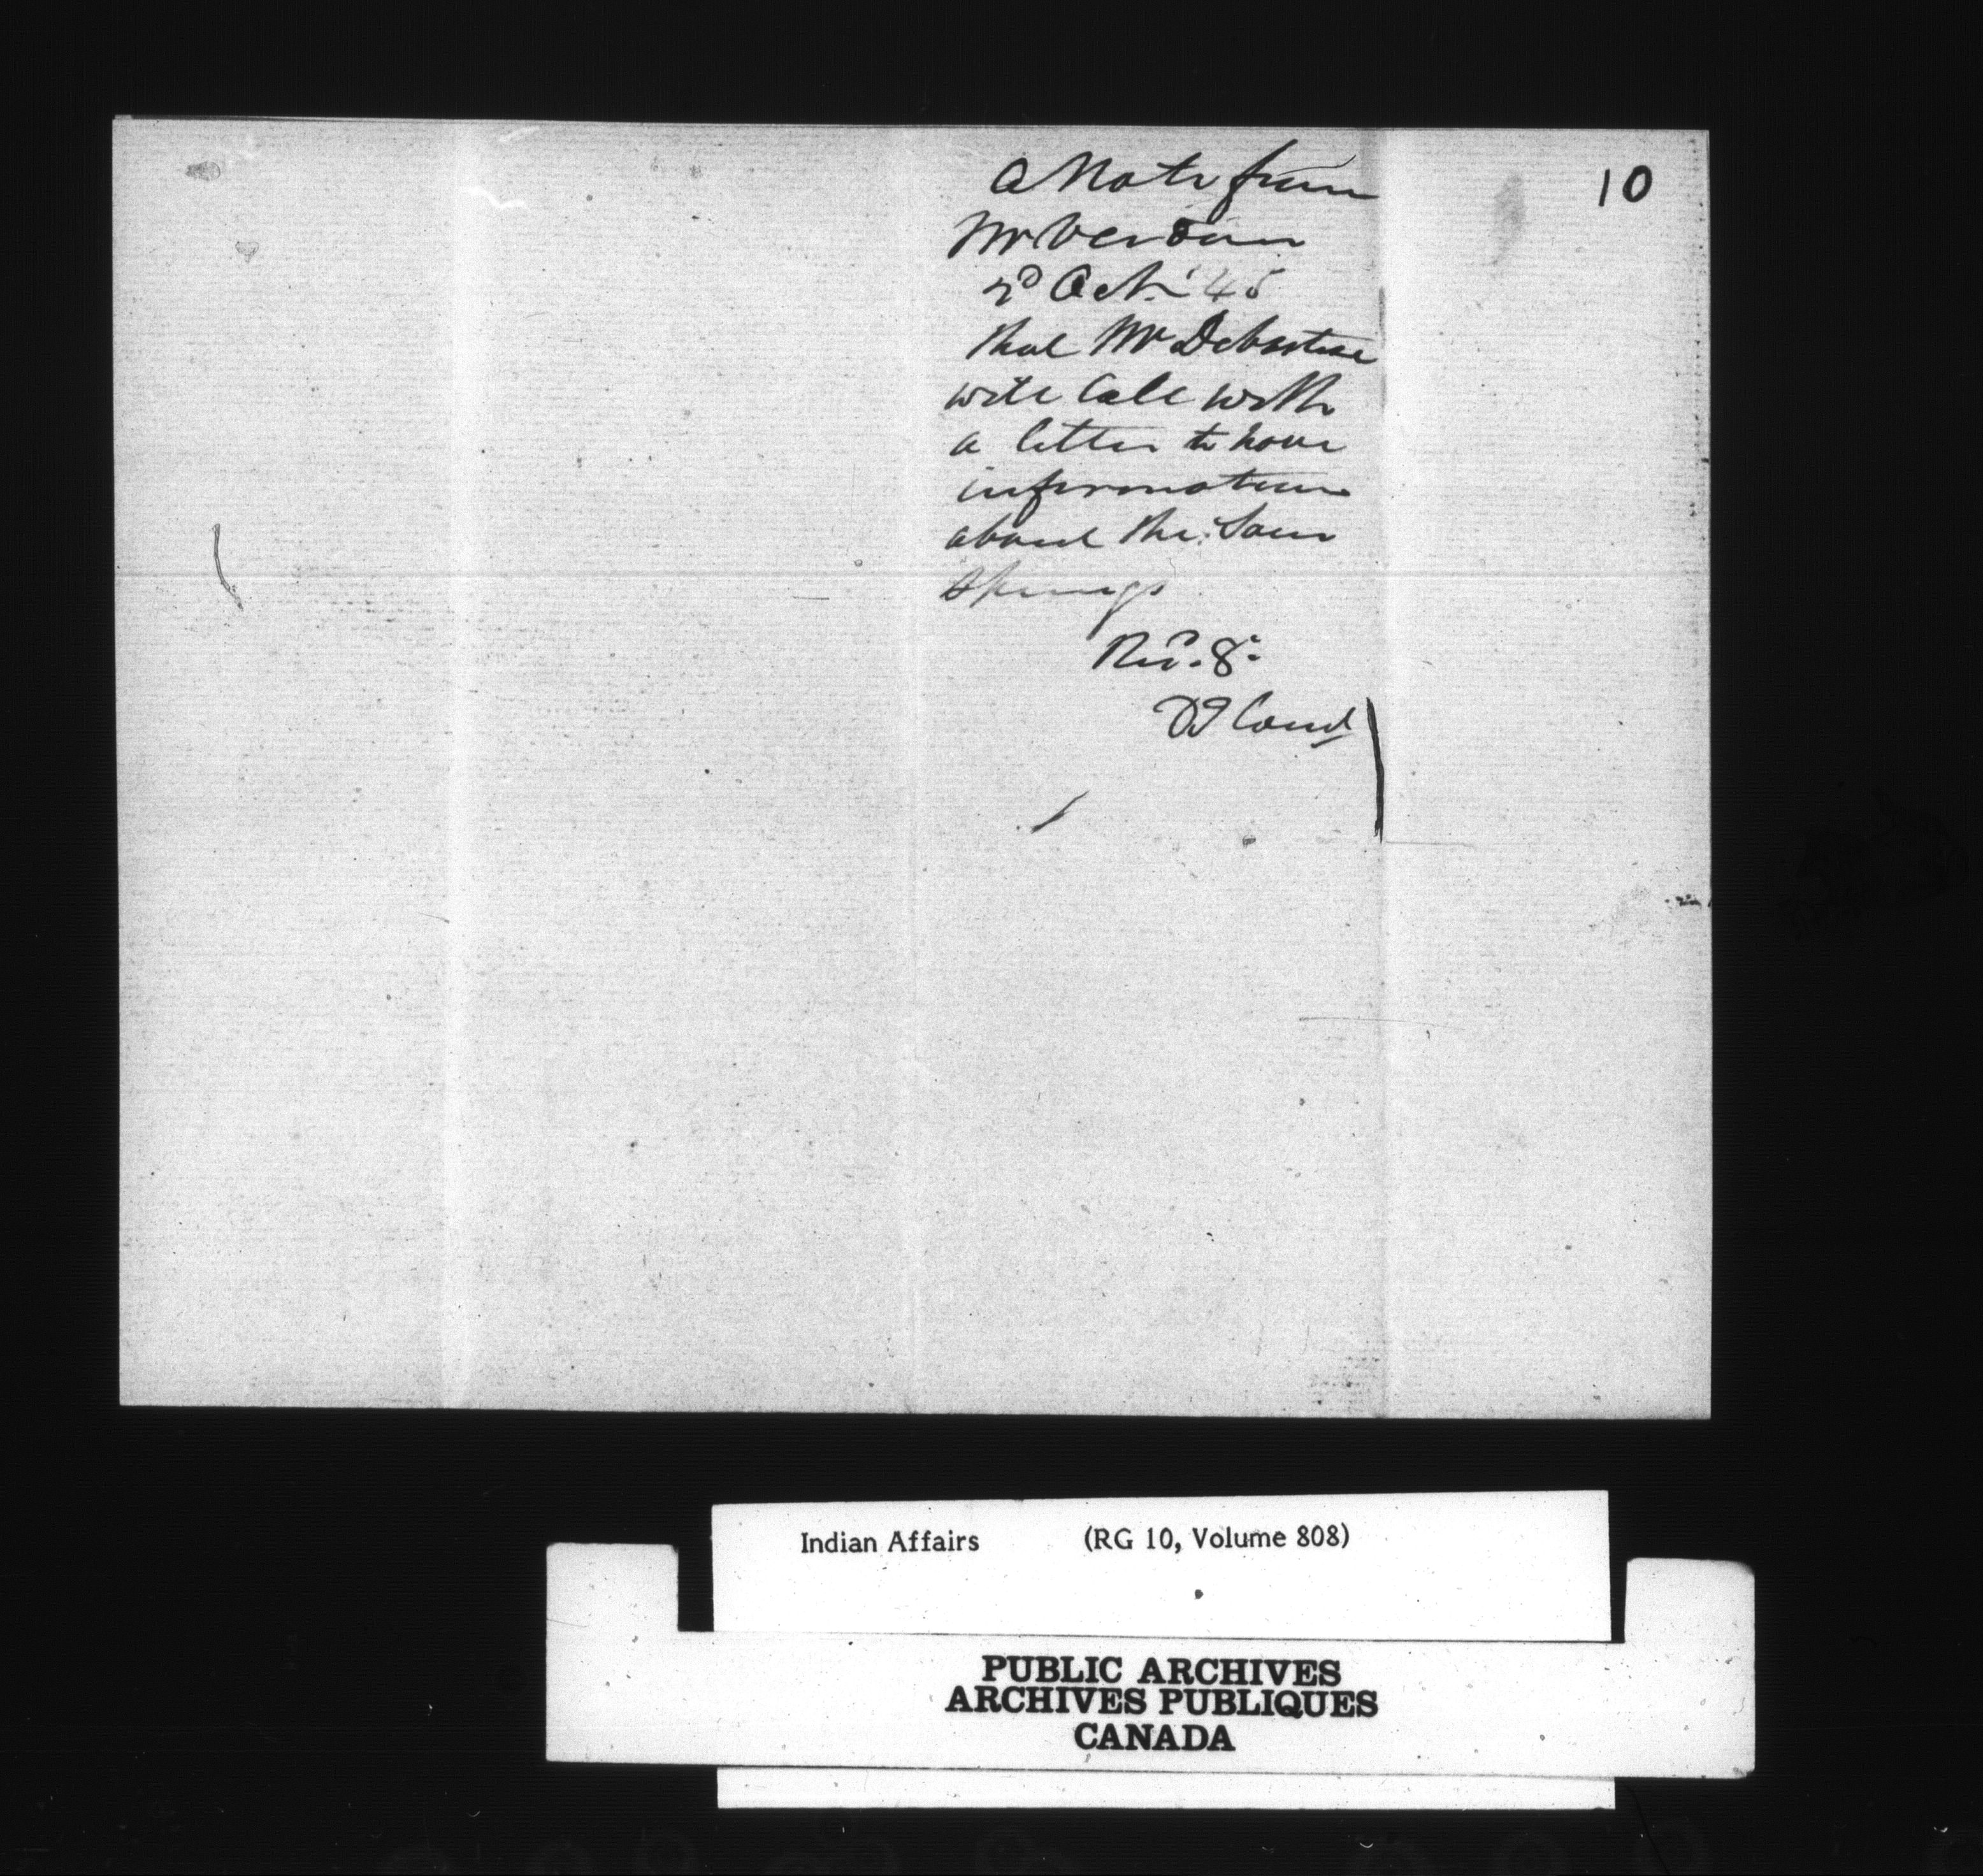 10
A Note from
Mr Verdon
2d Oct. '45
that Mr
will Call with
a letter to have
information
about the Sour
Springs
Recd. 8.
Indian Affairs (RG 10, Volume 808)
PUBLIC ARCHIVES
ARCHIVES PUBLIQUES
CANADA